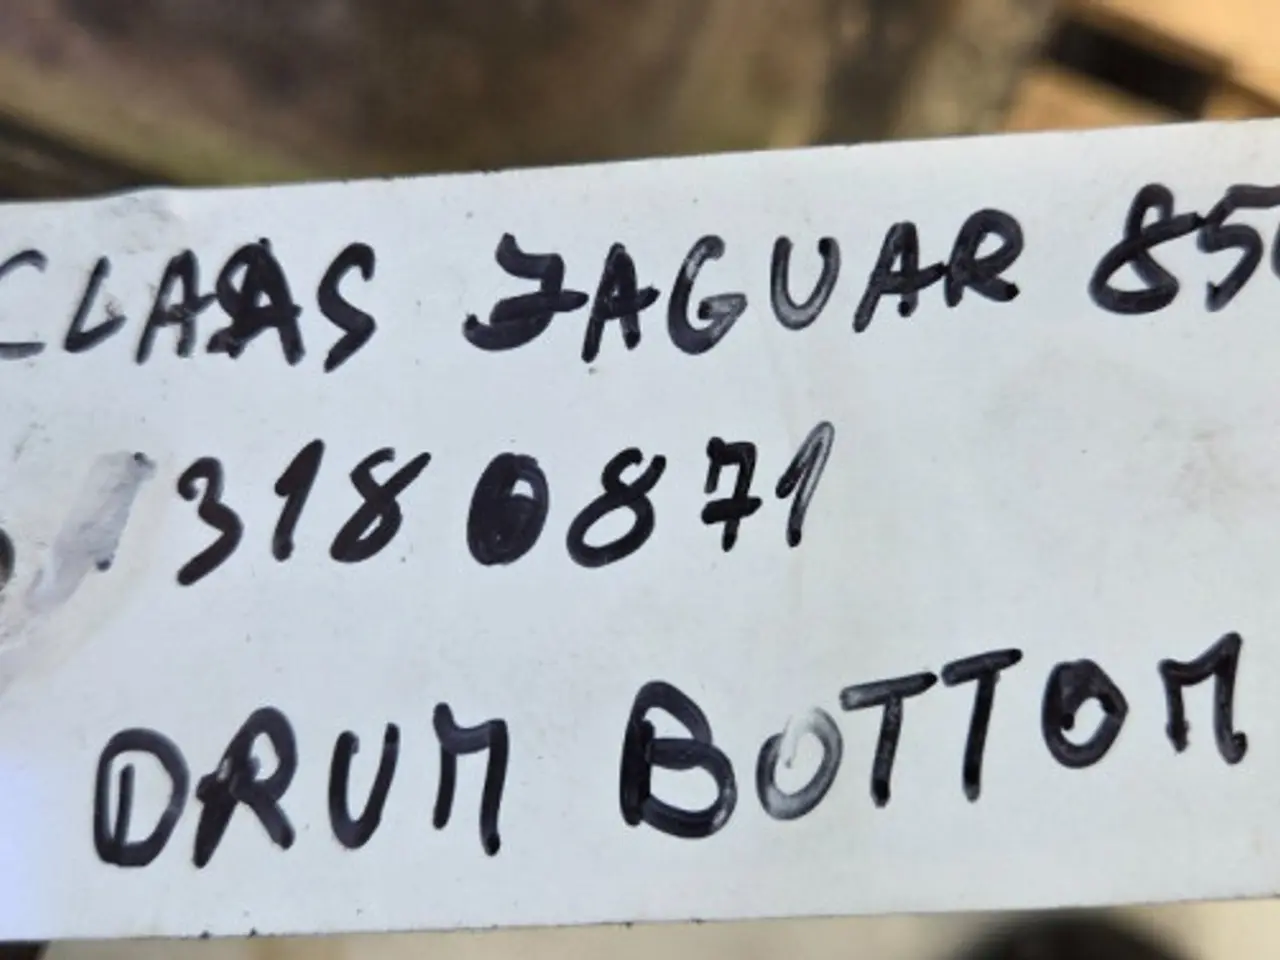 CLAAS JAGUAR 850
3180871
DRUM BOTTOM